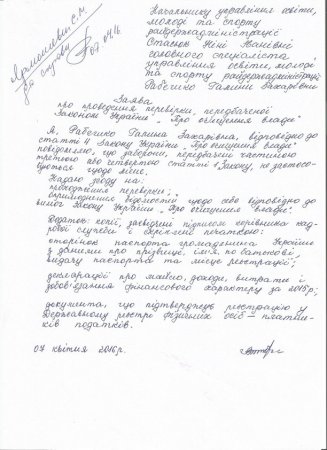 Ярмолевич С.М.
до справи
07.04.16
Начальнику управління освіти,
молоді та спорту
райдержадміністрації
Стасюк Ніні Іванівні
головного спеціаліста
управління освіти, молоді
та спорту райдержадміністрації
Рабечко Галини Захарівни
Заява
про проведення перевірки, передбаченої
Законом України „Про очищення влади"
Я, Рабечко Галина Захарівна, відповідно до
статті 4 Закону України „Про очищення влади"
повідомляю, що заборони, передбачені частиною
третьою або четвертою статті 1 Закону, не застосо-
вуються щодо мене.
Надаю згоду на:
проходження перевірки;
оприлюднення відомостей щодо себе відповідно до
вимог Закону України „Про очищення влади".
Додаток: копії, засвідчені підписом керівника кад-
рової служби і скріплені печаткою:
сторінок паспорта громадянина України
з даними про прізвище, ім'я, по батькові,
видачу паспорта та місце реєстрації;
декларації про майно, доходи, витрати і
зобов'язання фінансового характеру за 2015р;
документа, що підтверджує реєстрацію у
Державному реєстрі фізичних осіб – платни-
ків податків.
07 квітня 2016р.